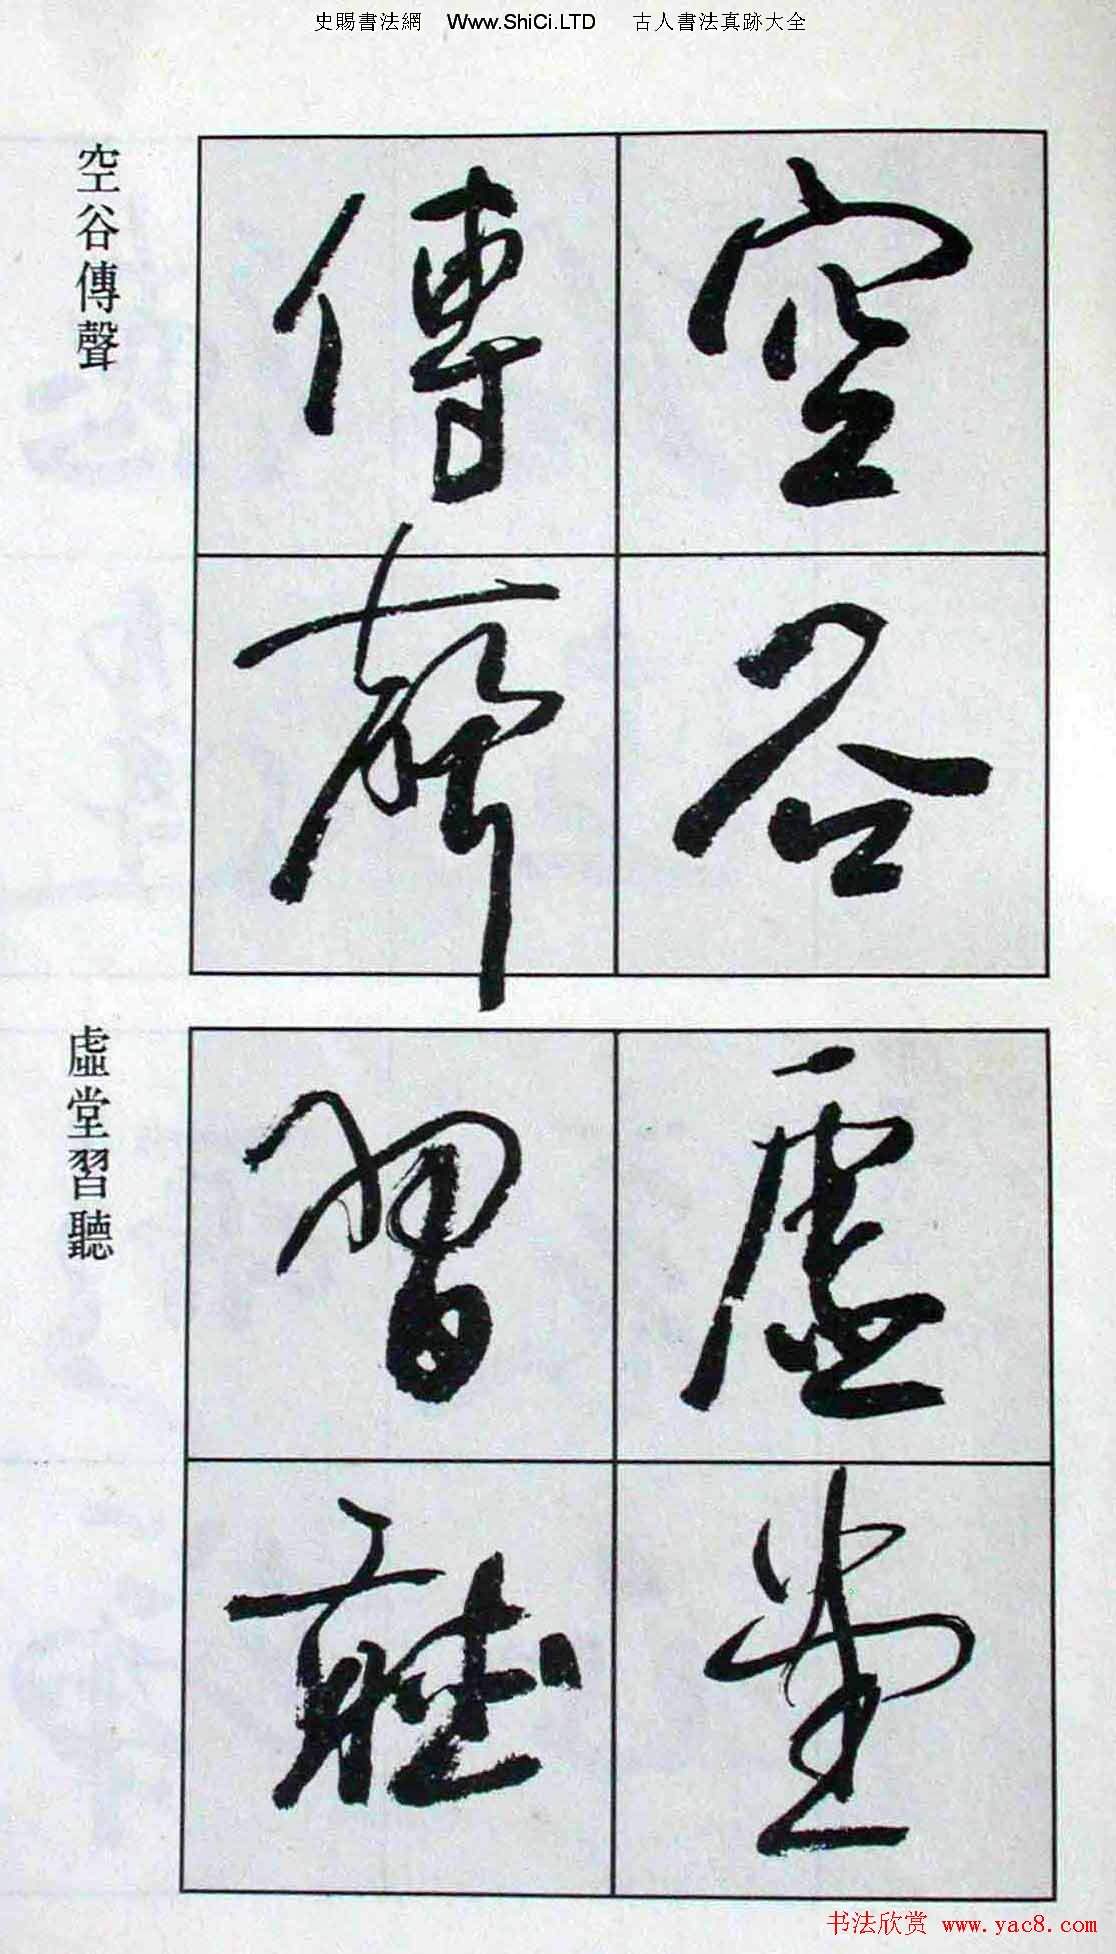 史賜書法網 Www.ShiCi.LTD 古人書法真跡大全
空谷
傳聲
空谷傳聲
虛堂
習聽
虛堂習聽
书法欣赏 www.yac8.com